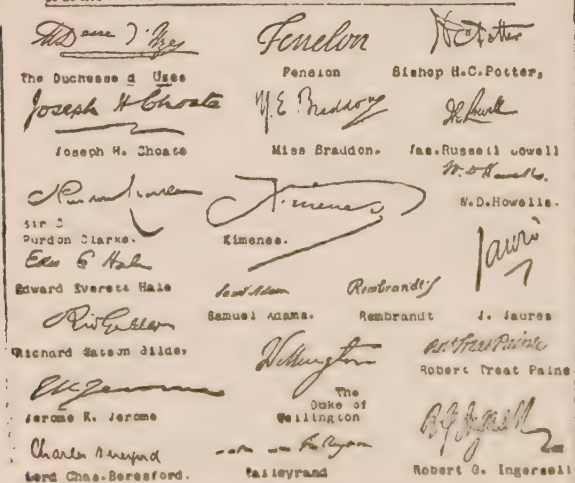 Fenelon
The Duchesse d Uzes
Fension
Bishop H.C.Potter,
Joseph H Choate
M. E. Braddon
JR Lowell
Joseph H. Choate
Miss Braddon.
Jas.Russell Lowell
W. D Howells.
Ximenes
W.D.Howells.
Sir C
Purdon Clarke.
Ximenes.
Edw E Hale
Jaurès
Edward Everett Hale
Saml Adams
Rembrandt
Samuel Adams.
Rembrandt
J. Jaures
Wellington
Rob Treat Paine
Richard Watson Gilder
Robert Treat Paine
The
Duke of
Jerome K. Jerome
Wellington
Charles Beresford
Lord Chas.Beresford.
Talleyrand
Robert G. Ingersoll